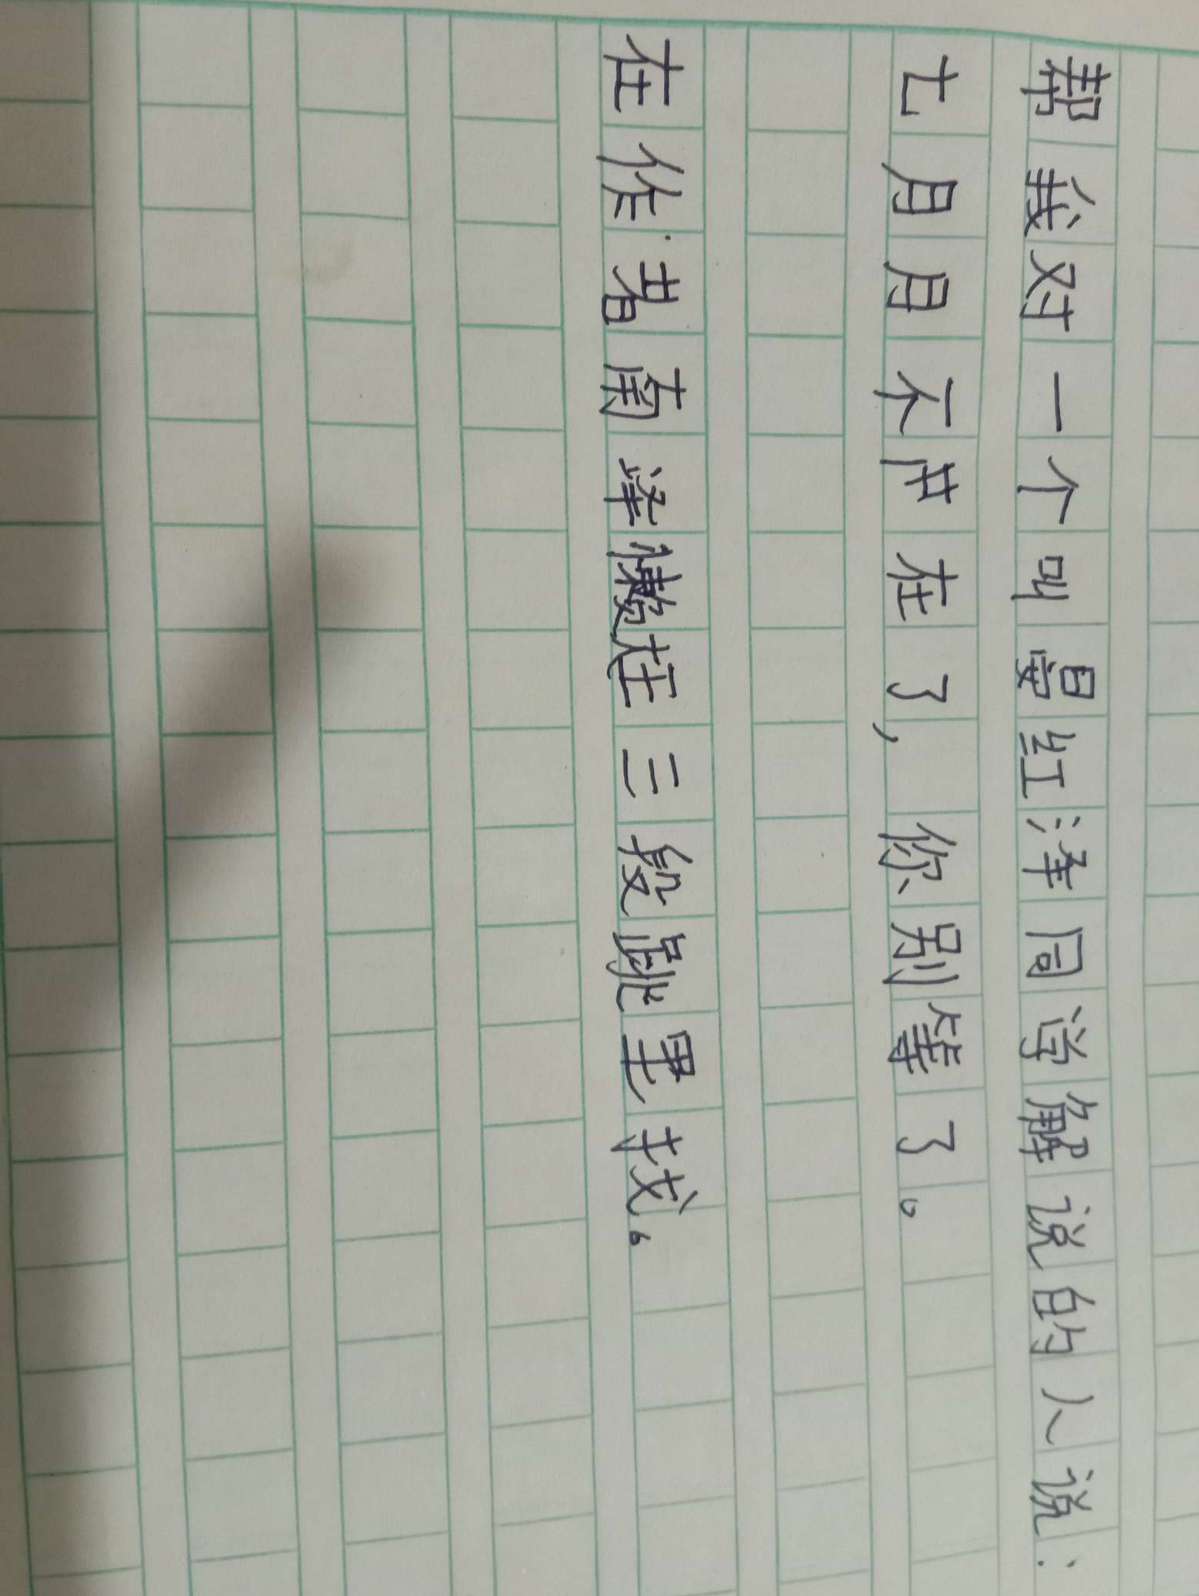 帮我对一个叫晏红泽同学解说的人说：
七月月不产在了，你别等了。
在作者南泽懒在三段跳里找。